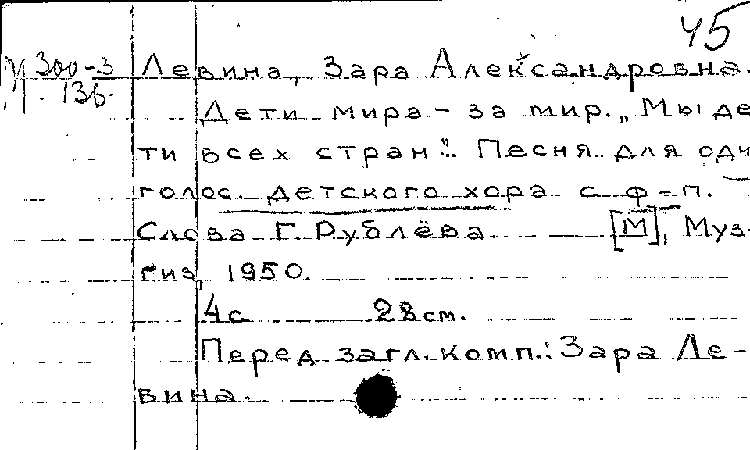 45
М 300-3
13б
Левина, Зара Александровна.
Дети мира - за мир. „Мы де
ти всех стран". Песня для одн
голос. детского хора с ф-п.
Слова Г. Рублёва [М], Муз-
гиз, 1950.
4с 28см.
Перед загл. комп.: Зара Ле-
вина.